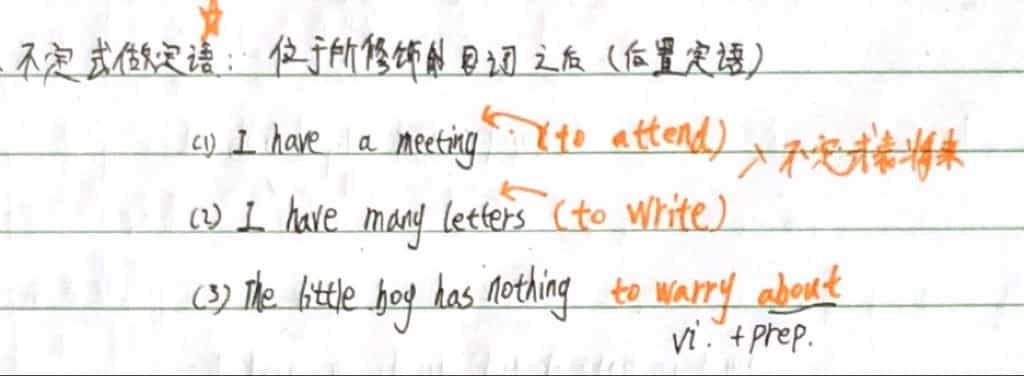 不定式做定语：位于所修饰的名词之后（后置定语）
(1) I have a meeting (to attend) > 不定式表将来
(2) I have many letters (to write)
(3) The little boy has nothing to warry about
vi. + prep.